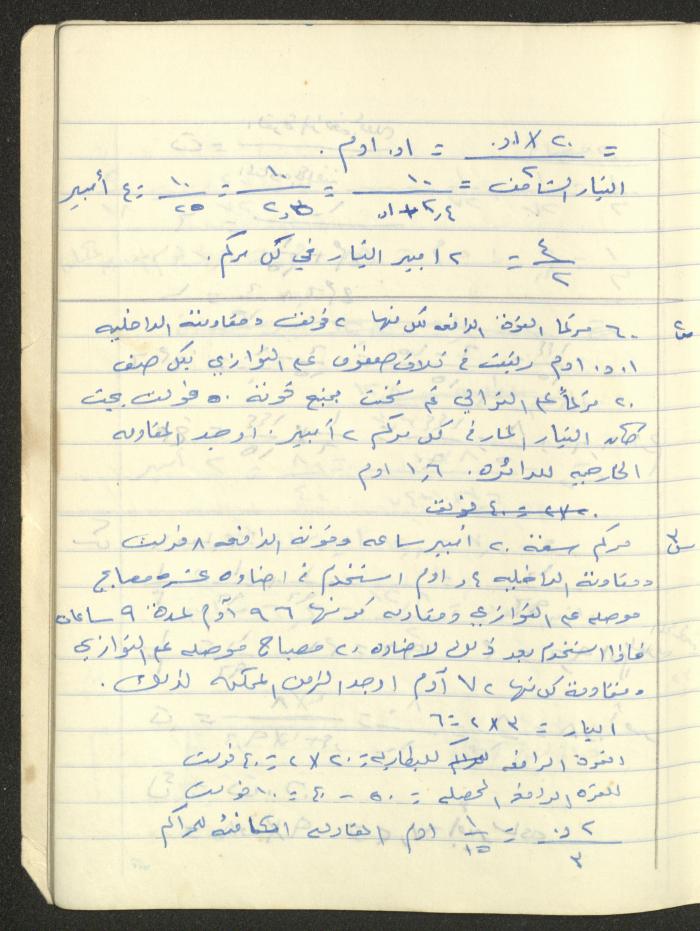 = ٢٠ × ٠١ر / ٢ = ٠١ر اوم .
التيار الشاحن = ١٠ / ٢٫٤ + ١ر = ١٠ / ٢٫٥ = ١٠٠ / ٢٥ = ٤ أمبير
٤ / ٢ = ٢ امبير التيار في كل مركم .
س٢ ٦٠ مركما القوة الدافعه لكل منها ٢ فولت ومقاومته الداخليه
٠١ر٠ اوم رتبت في ثلاث صفوف على التوازي بكل صف
٢٠ مركماً على التوالي ثم شحنت بمنبع قوته ٥٠ فولت بحيث
كان التيار المار في كل مركم ٢ أمبير . أوجد المقاومه
الخارجيه للدائره . ١٫٦ اوم
٢٠ × ٢ = ٤٠ فولت
س٣ مركم سعته ٢٠ أمبير ساعه وقوته الدافعه ٨ فولت
ومقاومته الداخليه ٤ر اوم استخدم في اضاءة عشره مصابيح
موصله على التوازي ومقاومه كل منها ٩٦ أوم لمدة ٩ ساعات
فاذا استخدم بعد ذلك لاضاءة ٢٠ مصباح موصله على التوازي
ومقاومة كل منها ٧٢ أوم اوجد الزمن الممكن لذلك .
التيار = ٣ × ٢ = ٦
القوة الدافعه للبطاريه = ٢٠ × ٢ = ٤٠ فولت
القوه الدافعه المحصله = ٥٠ - ٤٠ = ١٠ فولت
٢ر٠ / ٣ = ١ / ١٥ اوم المقاومه المكافئه للمراكم